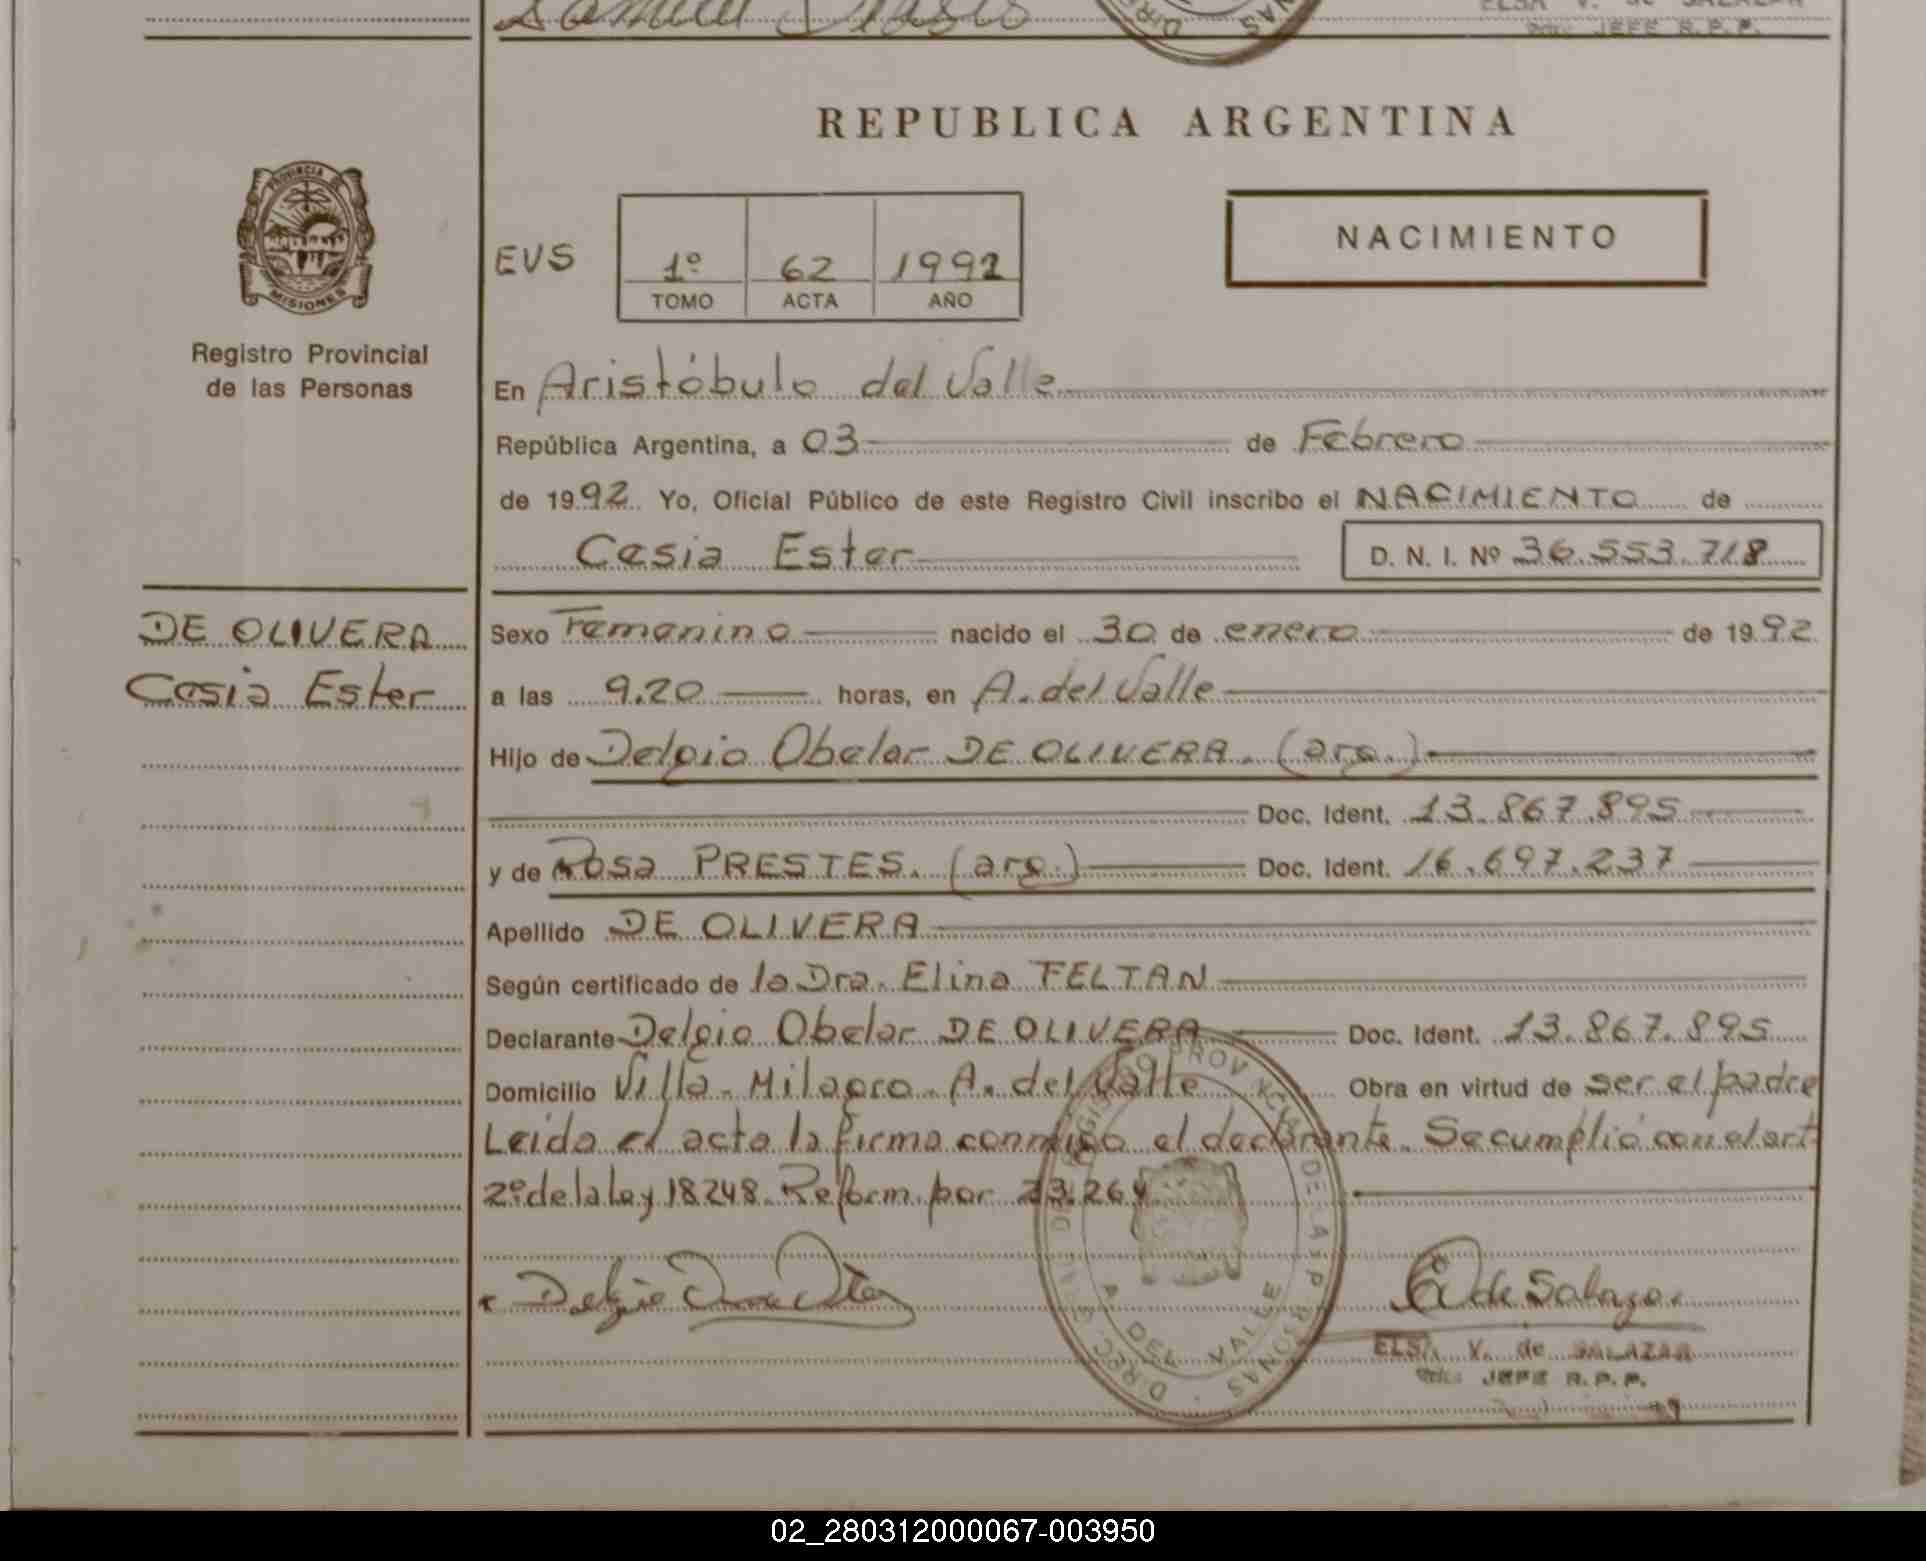 ELSA V. de SALAZAR
JEFE R.P.P.
REPUBLICA ARGENTINA
PROVINCIA DE
MISIONES
Registro Provincial
de las Personas
EVS
1º 62 1992
TOMO ACTA AÑO
NACIMIENTO
En Aristóbulo del Valle
República Argentina, a 03 de Febrero
de 1992. Yo, Oficial Público de este Registro Civil inscribo el NACIMIENTO de
Cesia Ester D. N. I. Nº 36.553.718
DE OLIVERA
Cesia Ester
Sexo Femenino nacido el 30 de enero de 1992
a las 9.20 horas, en A. del Valle
Hijo de Delgio Obelar DE OLIVERA. (arg.)
Doc. Ident. 13.867.895
y de Rosa PRESTES. (arg.) Doc. Ident. 16.697.237
Apellido DE OLIVERA
Según certificado de la Dra. Elina FELTAN
Declarante Delgio Obelar DE OLIVERA Doc. Ident. 13.867.895
Domicilio Villa Milagro. A. del Valle Obra en virtud de ser el padre
Leida el acta la firma conmigo el declarante. Se cumplió con el art
2º de la Ley 18248. Reform. por 23.264
DIREC. GENERAL DEL REGISTRO PROVINCIAL DE LAS PERSONAS
A. DEL VALLE
Delgio
E V de Salazar
ELSA V. de SALAZAR
JEFE R.P.P.
02_280312000067-003950